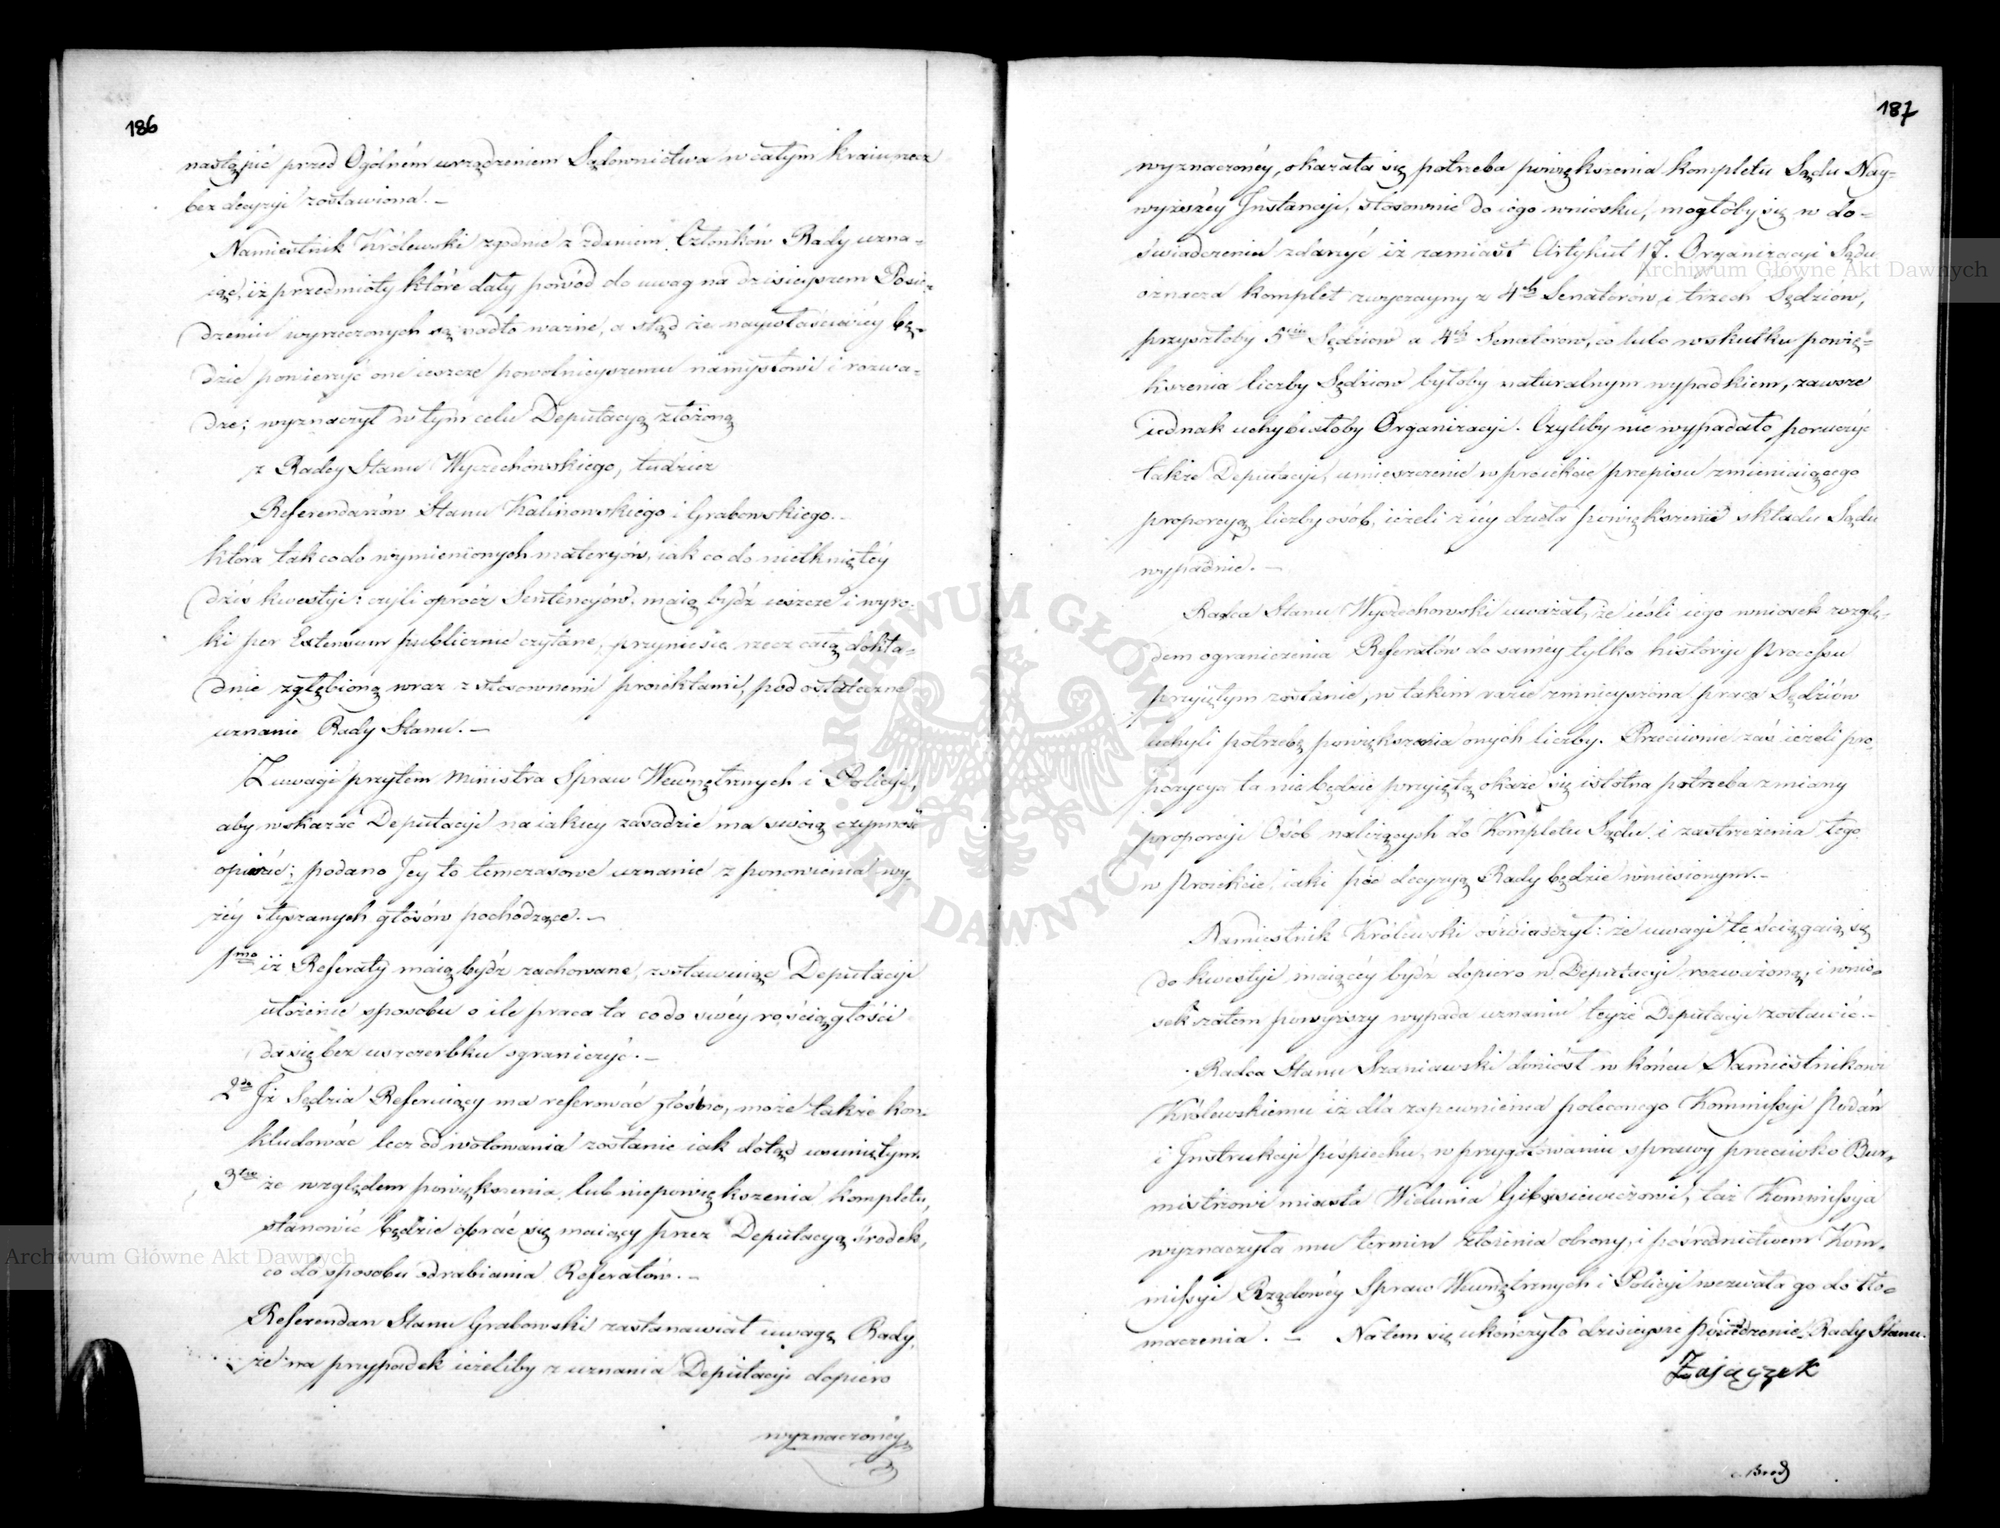 186
nastąpić przed Ogólném urządzeniem Sądownictwa w całym kraiu, rzecz
bez decyzyi zostawiona. –
Namiestnik Królewski zgodnie z zdaniem Członków Rady uzna-
iąc, iż przedmioty które dały powód do uwag na dzisieyszem Posie-
dzeniu wyrzeczonych są nadto ważne, a stąd że naywłaściwiéy bę-
dzie powierzyć one ieszcze powolnieyszemu namysłowi i rozwa-
dze; wyznaczył w tym celu Deputacyą złożoną
z Radcy Stanu Wyczechowskiego, tudzież
Referendarzów Stanu Kalinowskiego i Grabowskiego. –
która tak co do wymienionych materyów, iak co do nietkniętéy
dziś kwestyi: czyli oprócz Sentencyów, maią bydź ieszcze i wyro-
ki per Extensum publicznie czytane, przyniesie rzecz całą dokła-
dnie zgłębioną wraz z stosownemi proiektami, pod ostateczne
uznanie Rady Stanu. –
Z uwagi przytem Ministra Spraw Wewnętrznych i Policyi,
aby wskazać Deputacyi na iakiey zasadzie ma swoią czynność
opierać; podano Jey to temczasowe uznanie z ponowienia wy-
żéy słyszanych głosów pochodzące. –
1mo iż Referaty maią bydź zachowane, zostawuiąc Deputacyi
ułożenie sposobu o ile praca ta co do swéy rościągłości
da się bez uszczerbku ograniczyć. –
2do Iż Sędzia Referuiący ma referować głośno, może także kon-
kludować lecz od wotowania zostanie iak dotąd usuniętym.
3tio że względem powiększenia, lub niepowiększenia kompletu,
stanowić będzie obrać się maiący przez Deputacyą środek,
co do sposobu odrabiania Referatów. –
Referendarz Stanu Grabowski zastanawiał uwagę Rady,
że na przypadek ieżeliby z uznania Deputacyi dopiero
wyznaczonéy
187
wyznaczonéy, okazała się potrzeba powiększenia kompletu Sądu Nay-
wyższéy Instancyi, stosownie do iego wniosku, mogłoby się w do-
świadczeniu zdarzyć iż zamiast Artykuł 17. Organizacyi Sądu
oznacza komplet zwyczayny z 4ch Senatorów, i trzech Sędziów,
przyszłoby 5ciu Sędziow a 4ch Senatorow, co lubo w skutku powię-
kszenia liczby Sędziow byłoby naturalnym wypadkiem, zawsze
iednak uchybiałoby Organizacyi. Czyliby nie wypadało poruczyć
także Deputacyi, umieszczenie w proiekcie przepisu zmieniaiącego
proporcyą liczby osób, ieżeli z iéy dzieła powiększenie składu Sądu
wypadnie. –
Radca Stanu Wyczechowski uważał, że ieśli iego wniosek wzglę-
dem ograniczenia Referatów do saméy tylko historyi Processu
przyiętym zostanie, w takim razie zmnieyszona praca Sędziów
uchyli potrzebę powiększenia onych liczby. Przeciwnie zaś ieżeli pro-
pozycya ta nie będzie przyiętą okaże się istotna potrzeba zmiany
proporcyi Osób należących do Kompletu Sądu i zastrzeżenia tego
w Proiekcie, iaki pod decyzyą Rady będzie wniesionym. –
Namiestnik Królewski oświadczył: że uwagi te ściągaią się
do kwestyi maiącéy bydź dopiero w Deputacyi rozważoną, i wnio-
sek zatem powyższy wypada uznaniu teyże Deputacyi zostawić. –
Radca Stanu Szaniawski doniosł w końcu Namiestnikowi
Królewskiemu iż dla zapewnienia poleconego Kommissyi Podań
i Instrukcyi pośpiechu, w przygotowaniu sprawy przeciwko Bur-
mistrzowi miasta Wielunia, taż Kommissya
wyznaczyła mu termin złożenia obrony, i pośrednictwem Kom-
missyi Rządowéy Spraw Wewnętrznych i Policyi wezwała go do tło-
maczenia. – Na tem się ukończyło dzisieysze posiedzenie Rady Stanu.
Zajączek
Archiwum Główne Akt Dawnych
Archiwum Główne Akt Dawnych
ARCHIWUM GŁÓWNE AKT DAWNYCH